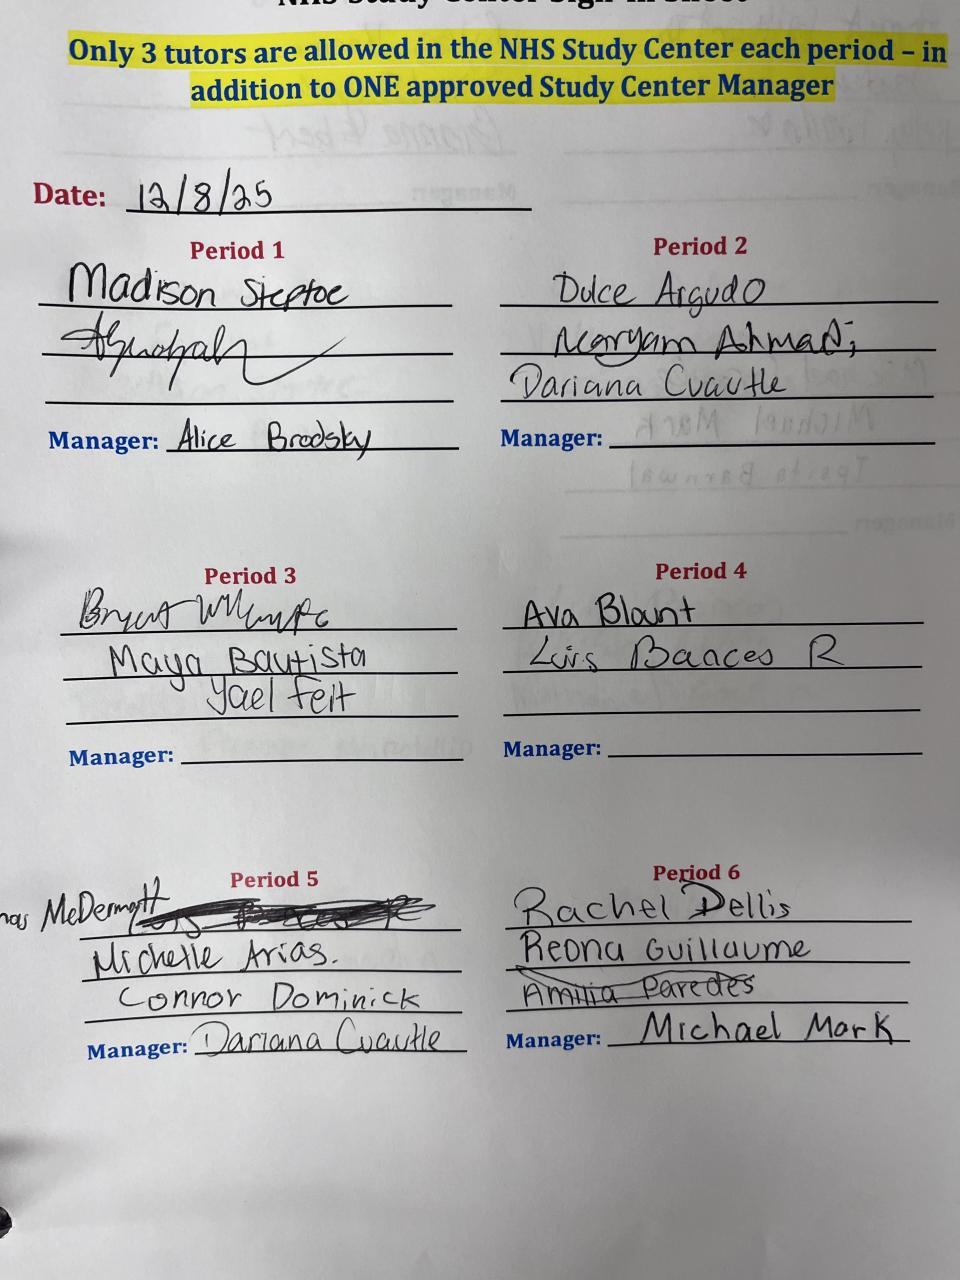 NHS Study Center Sign-in Sheet
Only 3 tutors are allowed in the NHS Study Center each period – in
addition to ONE approved Study Center Manager
Date: 12/8/25
Period 1
Madison Steptoe
Manager: Alice Brodsky
Period 2
Dulce Argudo
Maryam Ahmadi
Dariana Cuautle
Manager:
Period 3
Maya Bautista
Yael Feit
Manager:
Period 4
Ava Blount
Luis Baaces R
Manager:
Period 5
McDermott
Michelle Arias.
Connor Dominick
Manager: Dariana Cuautle
Period 6
Rachel Dellis
Reona Guillaume
Amilia Paredes
Manager: Michael Mark